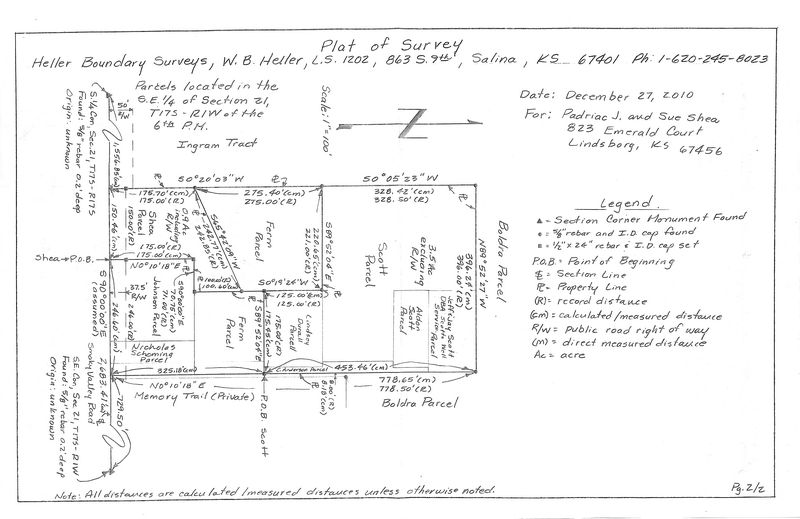 Plat of Survey
Heller Boundary Surveys, W. B. Heller, L.S. 1202, 863 S. 9th, Salina, KS 67401 Ph: 1-620-245-8023
Parcels located in the
S.E. 1/4 of Section 21,
T17S - R1W of the
6th P.M.
Scale: 1" = 100'
Date: December 27, 2010
For: Padriac J. and Sue Shea
823 Emerald Court
Lindsborg, KS 67456
S. 1/4 Cor., Sec. 21, T17S - R17S
Found: 5/8" rebar 0.2' deep
Origin: unknown
50'
R/W
1,556.85'(cm)
Ingram Tract
S0°20'03"W
175.70'(cm)
175.00'(R)
275.40'(cm)
275.00'(R)
S0°05'23"W
328.42'(cm)
328.50'(R)
150.46'(cm)
150.00'(R)
Shea
Parcel
0.9 Ac
including
R/W
242.85'(R)
Ferm
Parcel
S89°52'04"E
220.65'(cm)
221.00'(R)
Scott
Parcel
3.5 Ac
excluding
R/W
396.24'(m)
396.00'(R)
N89°52'27"W
Boldra Parcel
Shea P.O.B.
175.00'(cm)
175.00'(R)
N0°10'18"E
100.60'(cm)
S0°19'26"W
125.00'(cm)
125.00'(R)
S90°00'00"E
(assumed)
246.60'(cm)
246.00'(R)
37.5'
R/W
Johnson Parcel
71.00'(R)
70.75'(cm)
S90°00'00"E
Nicholas
Schoming
Parcel
Ferm
Parcel
S89°52'04"E
175.95'(cm)
175.00'(R)
Lindsey
Parcel
Aldon
Scott
Parcel
Jeffway Scott
DBA Scott's Well
Service Parcel
C. Anderson Parcel
325.18'(cm)
453.46'(cm)
N0°10'18"E
Memory Trail (Private)
P.O.B. Scott
8.00'(R)
8.18'(cm)
778.65'(m)
778.50'(R)
Boldra Parcel
2,683.41'(m)
Smoky Valley Road
729.50'
S.E. Cor., Sec. 21, T17S - R1W
Found: 5/8" rebar 0.2' deep
Origin: unknown
Legend
▲ = Section Corner Monument Found
= 5/8" rebar and I.D. cap found
= 1/2" x 24" rebar & I.D. cap set
P.O.B. = Point of Beginning
= Section Line
= Property Line
(R) = record distance
(cm) = calculated/measured distance
R/W = Public road right of way
(m) = direct measured distance
Ac = acre
Note: All distances are calculated/measured distances unless otherwise noted.
Pg. 2/2